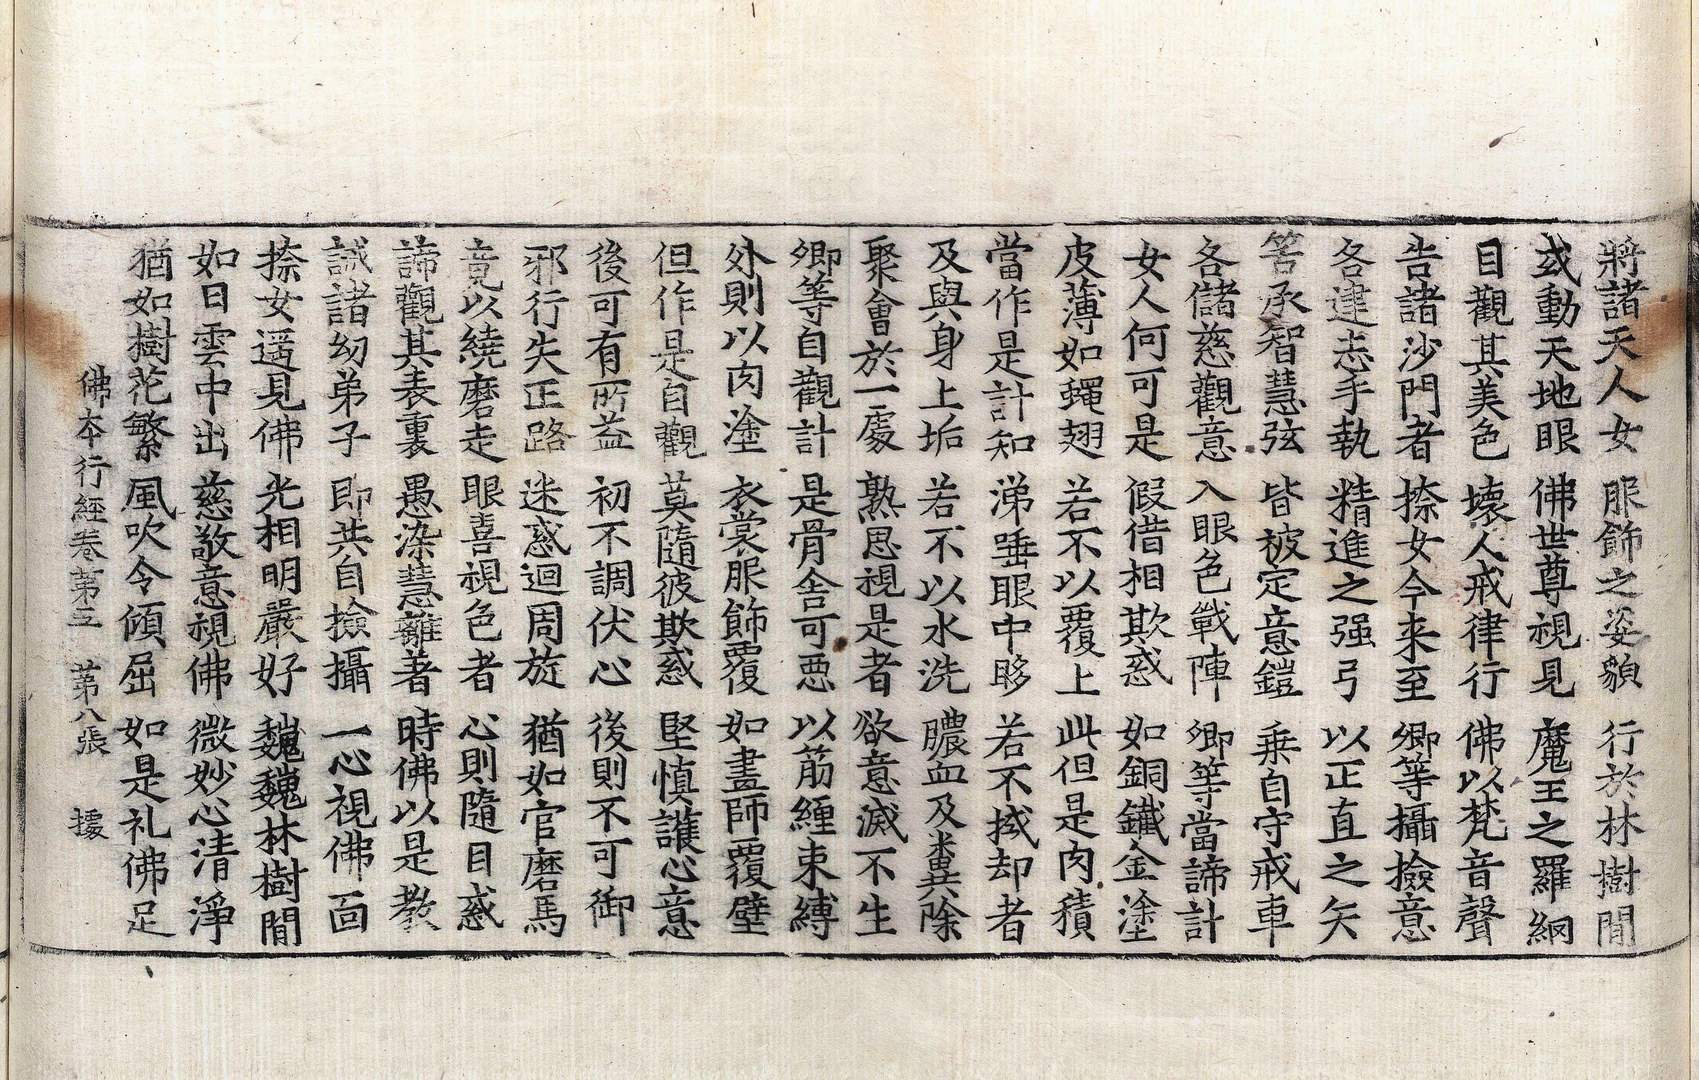 將諸天人女 服飾之姿貌 行於林樹間
或動天地眼 佛世尊視見 魔王之羅網
目觀其美色 壞人戒律行 佛以梵音聲
告諸沙門者 㮈女今来至 卿等攝撿意
各建志手執 精進之强弓 以正直之矢
筈承智慧弦 皆被定意鎧 乗自守戒車
各儲慈觀意 入眼色戰陣 卿等當諦計
女人何可是 假借相欺惑 如銅鐵金塗
皮薄如蠅翅 若不以覆上 此但是肉積
當作是計知 涕唾眼中眵 若不拭却者
及與身上垢 若不以水洗 膿血及糞共除
聚會於一處 熟思視是者 欲意滅不生
卿等自觀計 是骨舍可惡 以筋纏束縛
外則以肉塗 衣裳服飾覆 如畫師覆壁
但作是自觀 莫隨彼欺惑 堅慎護心意
後可有所益 初不調伏心 後則不可御
邪行失正路 迷惑迴周旋 猶如官磨馬
竟以繞磨走 眼喜視色者 心則隨目惑
諦觀其表裏 愚染慧離著 時佛以是教
誡諸幼弟子 即共自撿攝 一心視佛面
㮈女遥見佛 光相明嚴好 巍巍林樹間
如日雲中出 慈敬意視佛 微妙心清淨
猶如樹花繁 風吹令傾屈 如是礼佛足
佛本行經卷第三 第八張 據